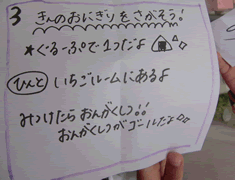 3 きんのおにぎりをさがそう!
★ぐるーぷで1つだよ
ひんと いちごルームにあるよ
みつけたらおんがくしつ!!
おんがくしつがゴールだよ